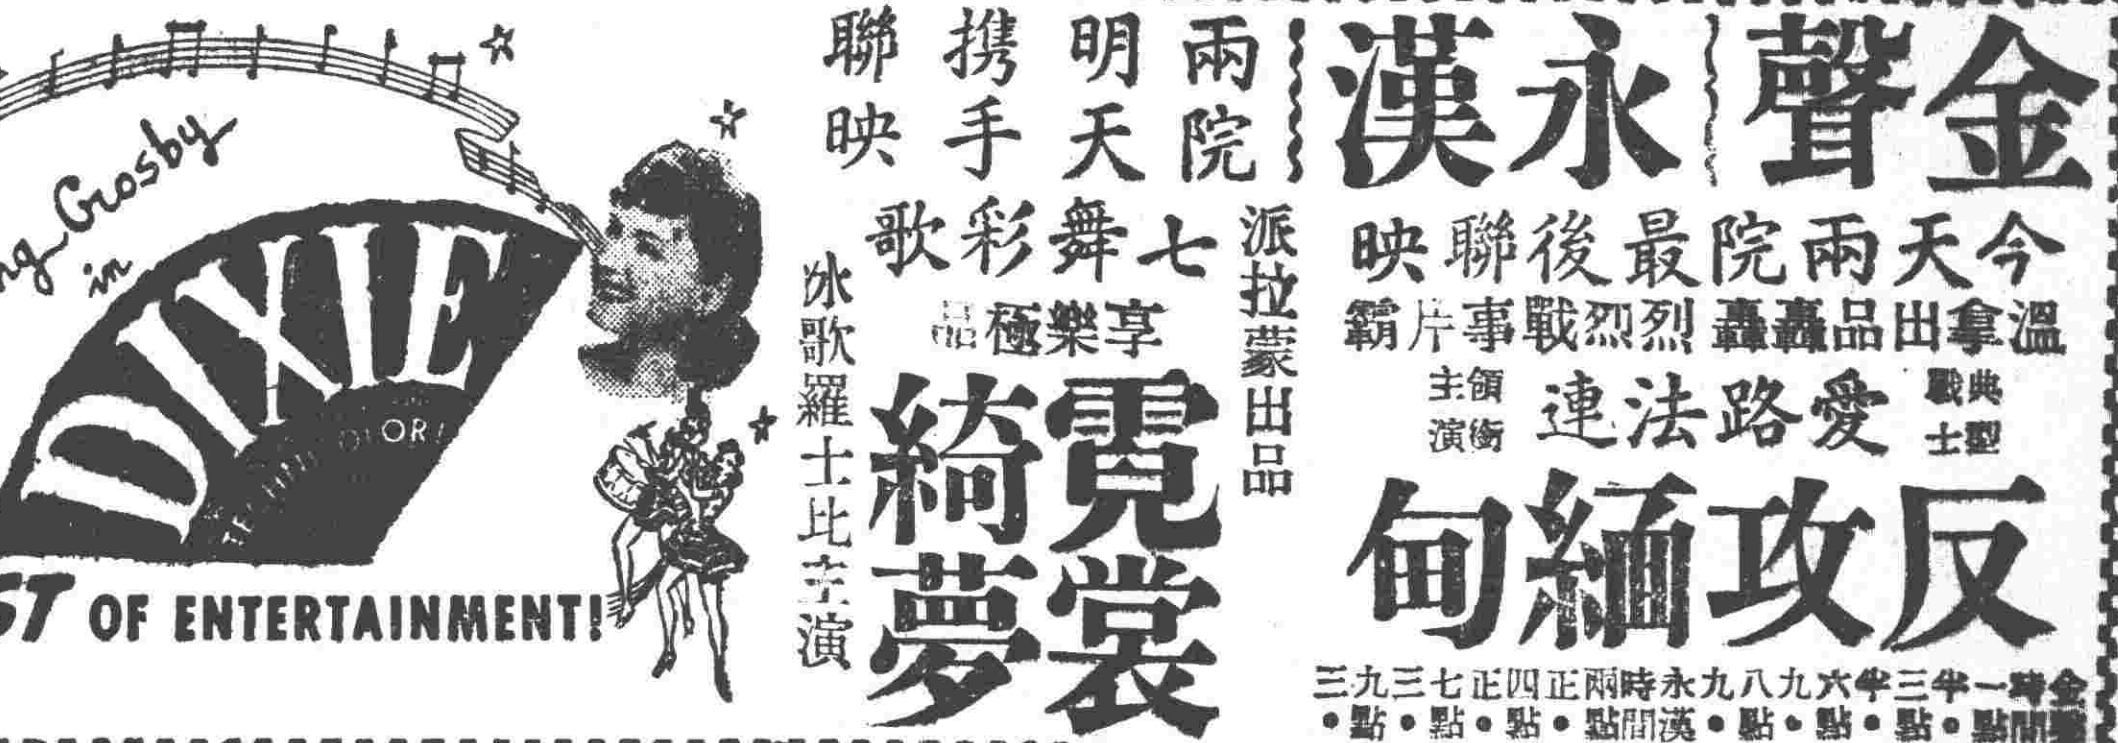 金聲 永漢
今天兩院最後聯映
溫拿出品轟轟烈烈戰事片霸
典型戰士 愛路法連 領銜主演
反攻緬甸
金聲時間一點半•三點半•六點九•八點九•
永漢時間兩點正•四點正•七點三•九點三•
兩院明天携手聯映
派拉蒙出品
七舞彩歌
享樂極品
霓裳綺夢
冰歌羅士比主演
Crosby
in
DIXIE
OF ENTERTAINMENT!